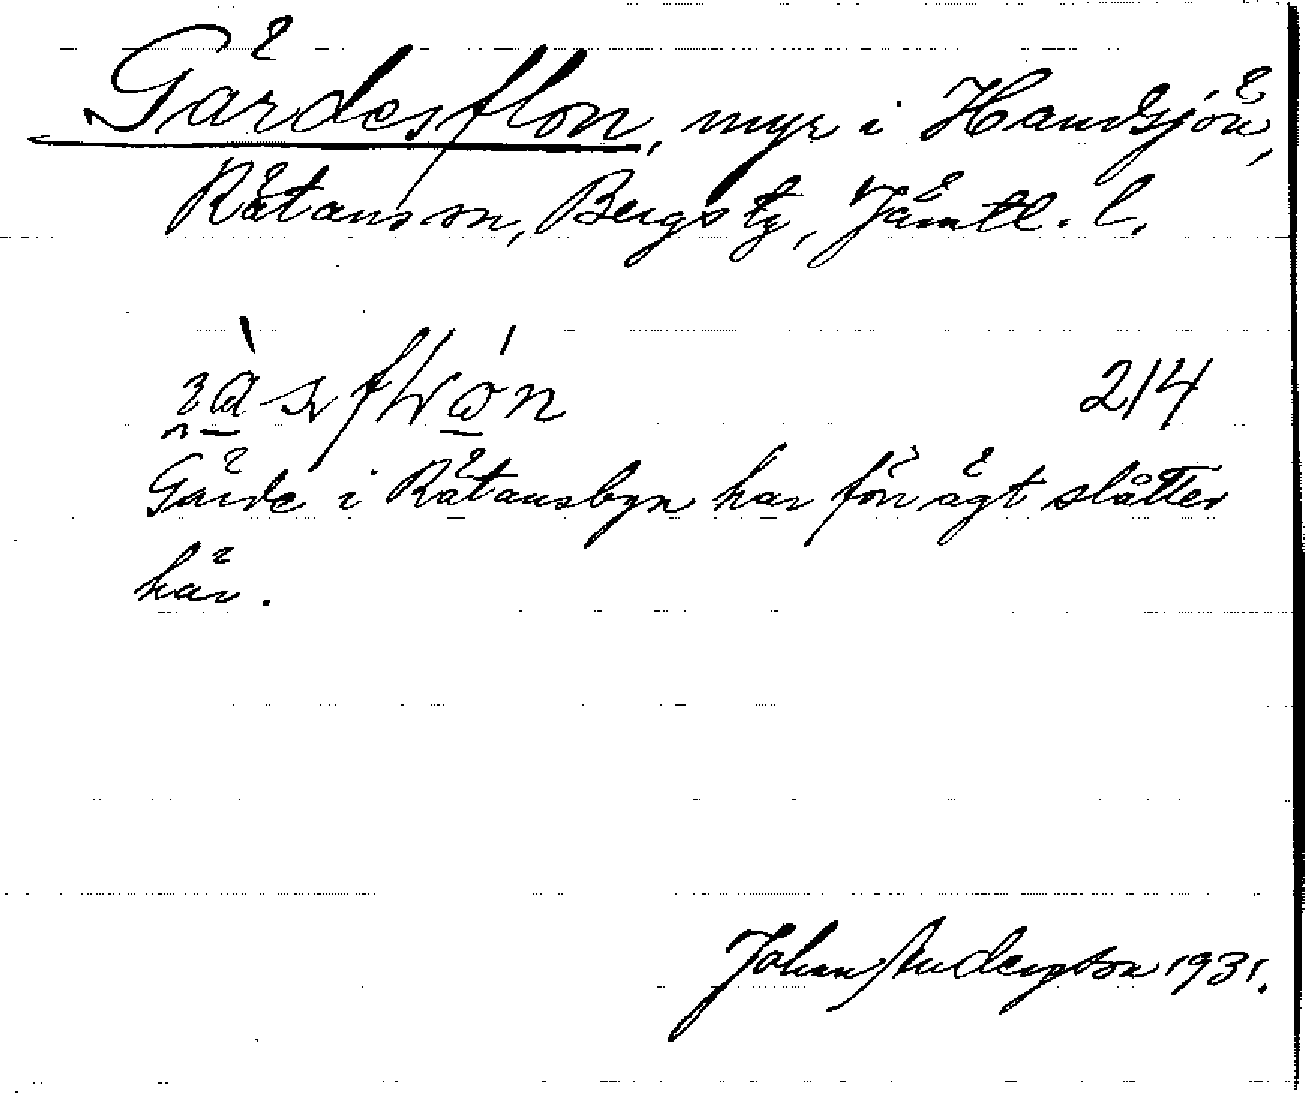 Gärdesflon, myr i Handsjön,
Rätans sn, Bergs tg, Jämtl. l.
214
Gärde i Rätansbyn har förr ägt slåtter
här.
Johan Anderson 1931.